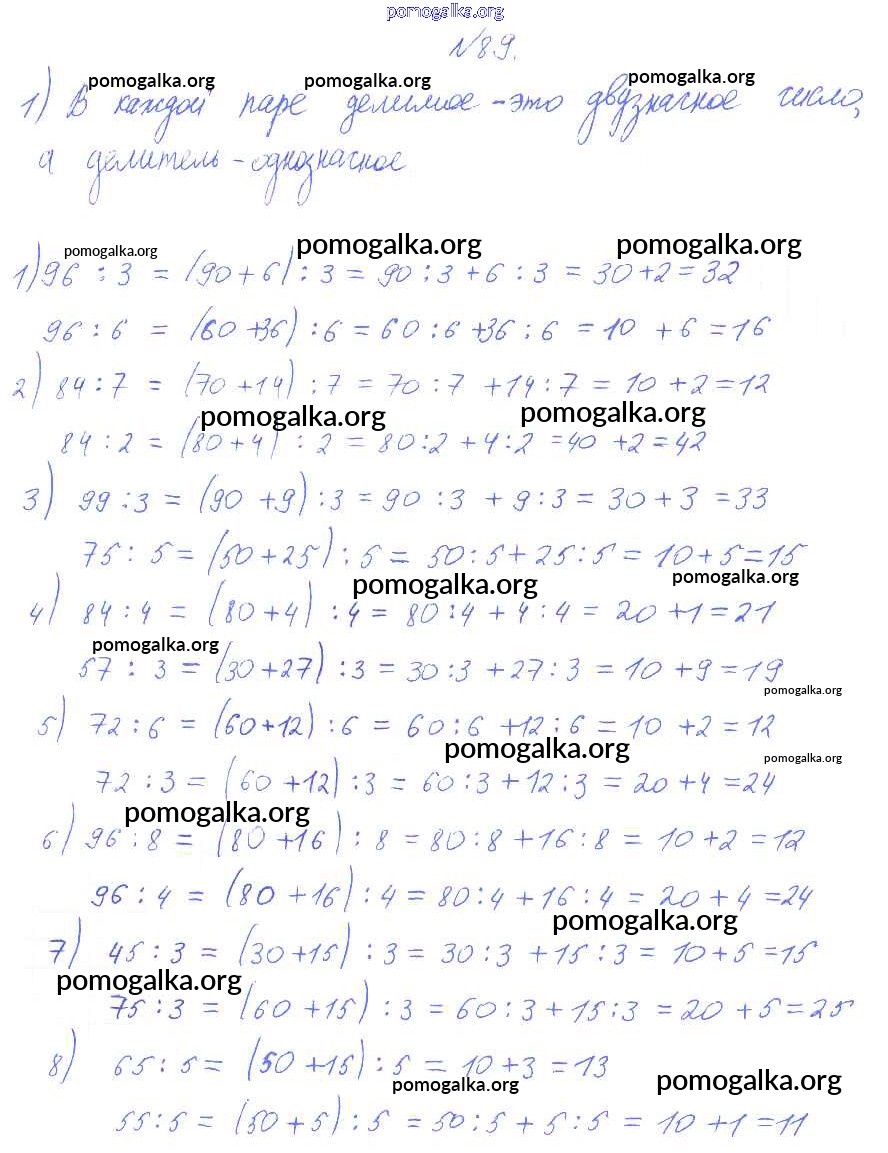 pomogalka.org
№89.
pomogalka.org pomogalka.org pomogalka.org
1) В каждой паре делимое - это двузначное число,
а делитель - однозначное
pomogalka.org pomogalka.org pomogalka.org
1) 96 : 3 = (90 + 6) : 3 = 90 : 3 + 6 : 3 = 30 + 2 = 32
96 : 6 = (60 + 36) : 6 = 60 : 6 + 36 : 6 = 10 + 6 = 16
2) 84 : 7 = (70 + 14) : 7 = 70 : 7 + 14 : 7 = 10 + 2 = 12
pomogalka.org pomogalka.org
84 : 2 = (80 + 4) : 2 = 80 : 2 + 4 : 2 = 40 + 2 = 42
3) 99 : 3 = (90 + 9) : 3 = 90 : 3 + 9 : 3 = 30 + 3 = 33
75 : 5 = (50 + 25) : 5 = 50 : 5 + 25 : 5 = 10 + 5 = 15
pomogalka.org pomogalka.org
4) 84 : 4 = (80 + 4) : 4 = 80 : 4 + 4 : 4 = 20 + 1 = 21
pomogalka.org
57 : 3 = (30 + 27) : 3 = 30 : 3 + 27 : 3 = 10 + 9 = 19
pomogalka.org
5) 72 : 6 = (60 + 12) : 6 = 60 : 6 + 12 : 6 = 10 + 2 = 12
pomogalka.org pomogalka.org
72 : 3 = (60 + 12) : 3 = 60 : 3 + 12 : 3 = 20 + 4 = 24
pomogalka.org
6) 96 : 8 = (80 + 16) : 8 = 80 : 8 + 16 : 8 = 10 + 2 = 12
96 : 4 = (80 + 16) : 4 = 80 : 4 + 16 : 4 = 20 + 4 = 24
pomogalka.org
7) 45 : 3 = (30 + 15) : 3 = 30 : 3 + 15 : 3 = 10 + 5 = 15
pomogalka.org
75 : 3 = (60 + 15) : 3 = 60 : 3 + 15 : 3 = 20 + 5 = 25
8) 65 : 5 = (50 + 15) : 5 = 10 + 3 = 13
pomogalka.org pomogalka.org
55 : 5 = (50 + 5) : 5 = 50 : 5 + 5 : 5 = 10 + 1 = 11